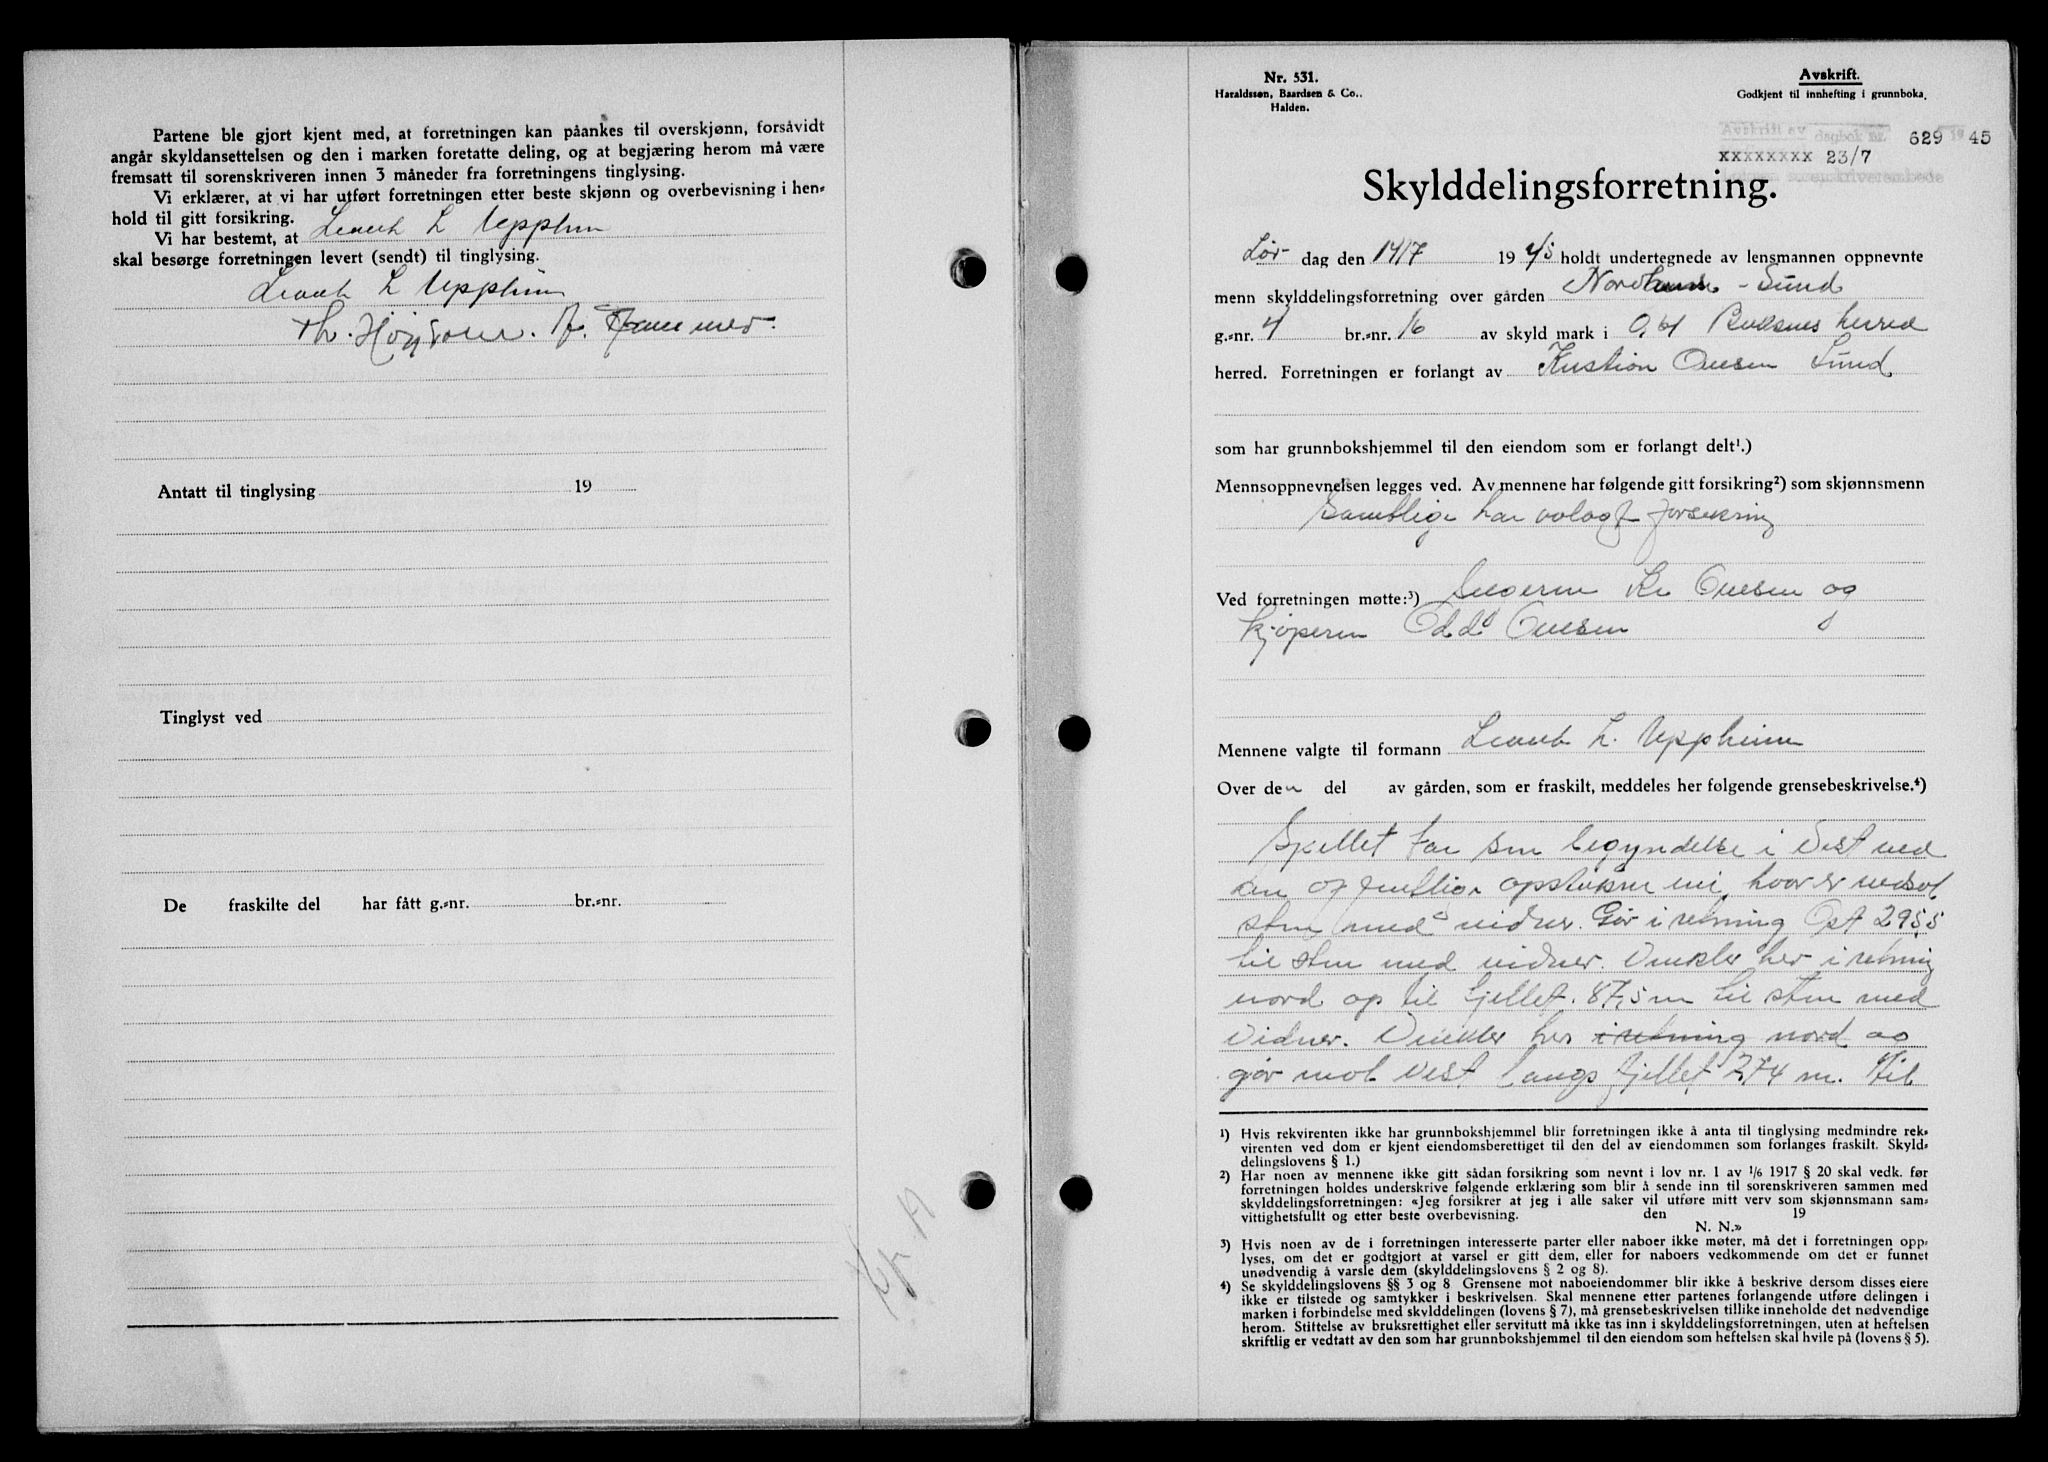 Partene ble gjort kjent med, at forretningen kan påankes til overskjønn, forsåvidt
angår skyldansettelsen og den i marken foretatte deling, og at begjæring herom må være
fremsatt til sorenskriveren innen 3 måneder fra forretningens tinglysing.
Vi erklærer, at vi har utført forretningen etter beste skjønn og overbevisning i hen-
hold til gitt forsikring.
Vi har bestemt, at L Uppheim
skal besørge forretningen levert (sendt) til tinglysing.
L Uppheim
Th.
Antatt til tinglysing 19
Tinglyst ved
De fraskilte del har fått g.-nr. br.-nr.
Nr. 531.
Haraldssøn, Baardsen & Co..
Halden.
Avskrift.
Godkjent til innhefting i grunnboka.
Avskrift av dagbok nr. 629 19 45
xxxxxxxx 23/7
sorenskriverembede
Skylddelingsforretning.
Lør dag den 14/7 19 45 holdt undertegnede av lensmannen oppnevnte
menn skylddelingsforretning over gården - Sund
g.-nr. 4 br.-nr. 16 av skyld mark i 0,61 Buksnes herred
herred. Forretningen er forlangt av Kristian Ovesen Sund
som har grunnbokshjemmel til den eiendom som er forlangt delt¹.)
Mennsoppnevnelsen legges ved. Av mennene har følgende gitt forsikring²) som skjønnsmenn
Samtlige har avlagt forsikring
Ved forretningen møtte:³) Selgeren Kr Ovesen og
kjøperen Odd Ovesen
Mennene valgte til formann L. Uppheim
Over den del av gården, som er fraskilt, meddeles her følgende grensebeskrivelse.⁴)
Skjellet tar sin begyndelse i Vest ved
den offentlige opstukne vei, hvor er nedsat
sten med vidner. Går i retning Øst 295,5
til sten med vidner. Vinkler her i retning
nord op til fjellet. 87,5 m til sten med
Vidner. Vinkler her i retning nord og
går mot vest langs fjellet 274 m. til
¹) Hvis rekvirenten ikke har grunnbokshjemmel blir forretningen ikke å anta til tinglysing medmindre rek-
virenten ved dom er kjent eiendomsberettiget til den del av eiendommen som forlanges fraskilt. Skyld-
delingslovens § 1.)
²) Har noen av mennene ikke gitt sådan forsikring som nevnt i lov nr. 1 av 1/6 1917 § 20 skal vedk. før
forretningen holdes underskrive følgende erklæring som blir å sende inn til sorenskriveren sammen med
skylddelingsforretningen: «Jeg forsikrer at jeg i alle saker vil utføre mitt verv som skjønnsmann sam-
vittighetsfullt og etter beste overbevisning. den 19
N. N.»
³) Hvis noen av de i forretningen interesserte parter eller naboer ikke møter, må det i forretningen opp-
lyses, om det er godtgjort at varsel er gitt dem, eller for naboers vedkommende om det er funnet
unødvendig å varsle dem (skylddelingslovens § 2 og 8).
⁴) Se skylddelingslovens §§ 3 og 8 Grensene mot naboeiendommer blir ikke å beskrive dersom disses eiere
ikke er tilstede og samtykker i beskrivelsen. Skal mennene etter partenes forlangende utføre delingen i
marken i forbindelse med skylddelingen (lovens § 7), må grensebeskrivelsen tillike inneholde det nødvendige
herom. Stiftelse av bruksrettighet eller servitutt må ikke tas inn i skylddelingsforretningen, uten at heftelsen
skriftlig er vedtatt av den som har grunnbokshjemmel til den eiendom som heftelsen skal hvile på (lovens § 5).